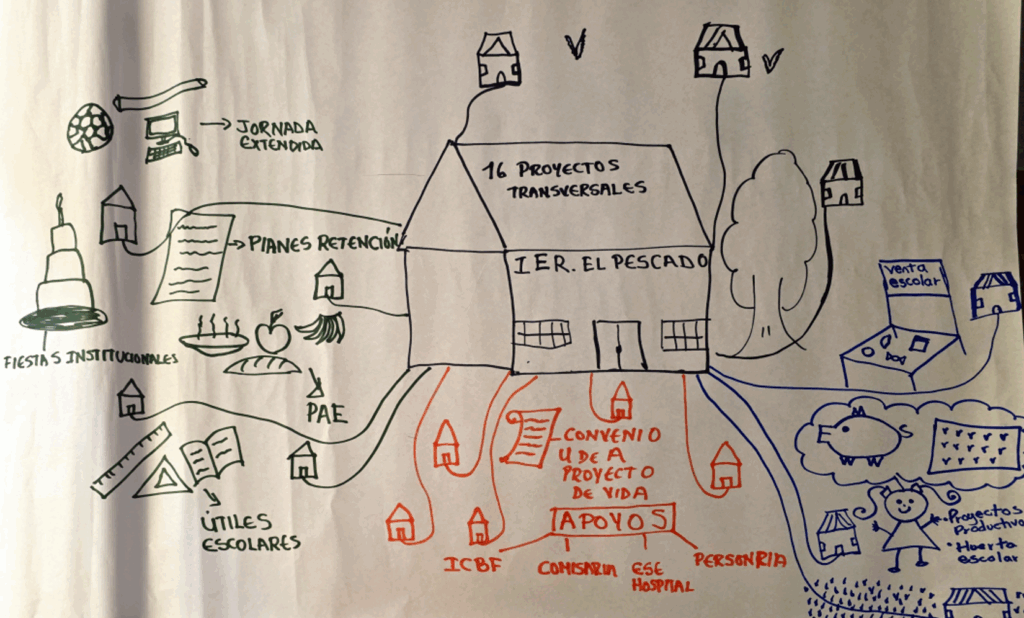 JORNADA
EXTENDIDA
16 PROYECTOS
TRANSVERSALES
PlANES RETENCIÓN
IER. EL PESCADO
venta
escolar
FIESTAS INSTITUCIONALES
PAE
CONVENIO
U DE A
PROYECTO
DE VIDA
ÚTILES
ESCOLARES
APOYOS
ICBF
COMISARIA
ESE
HOSPITAL
PERSONRIA
Proyectos
Productivo
• Huerta
escolar